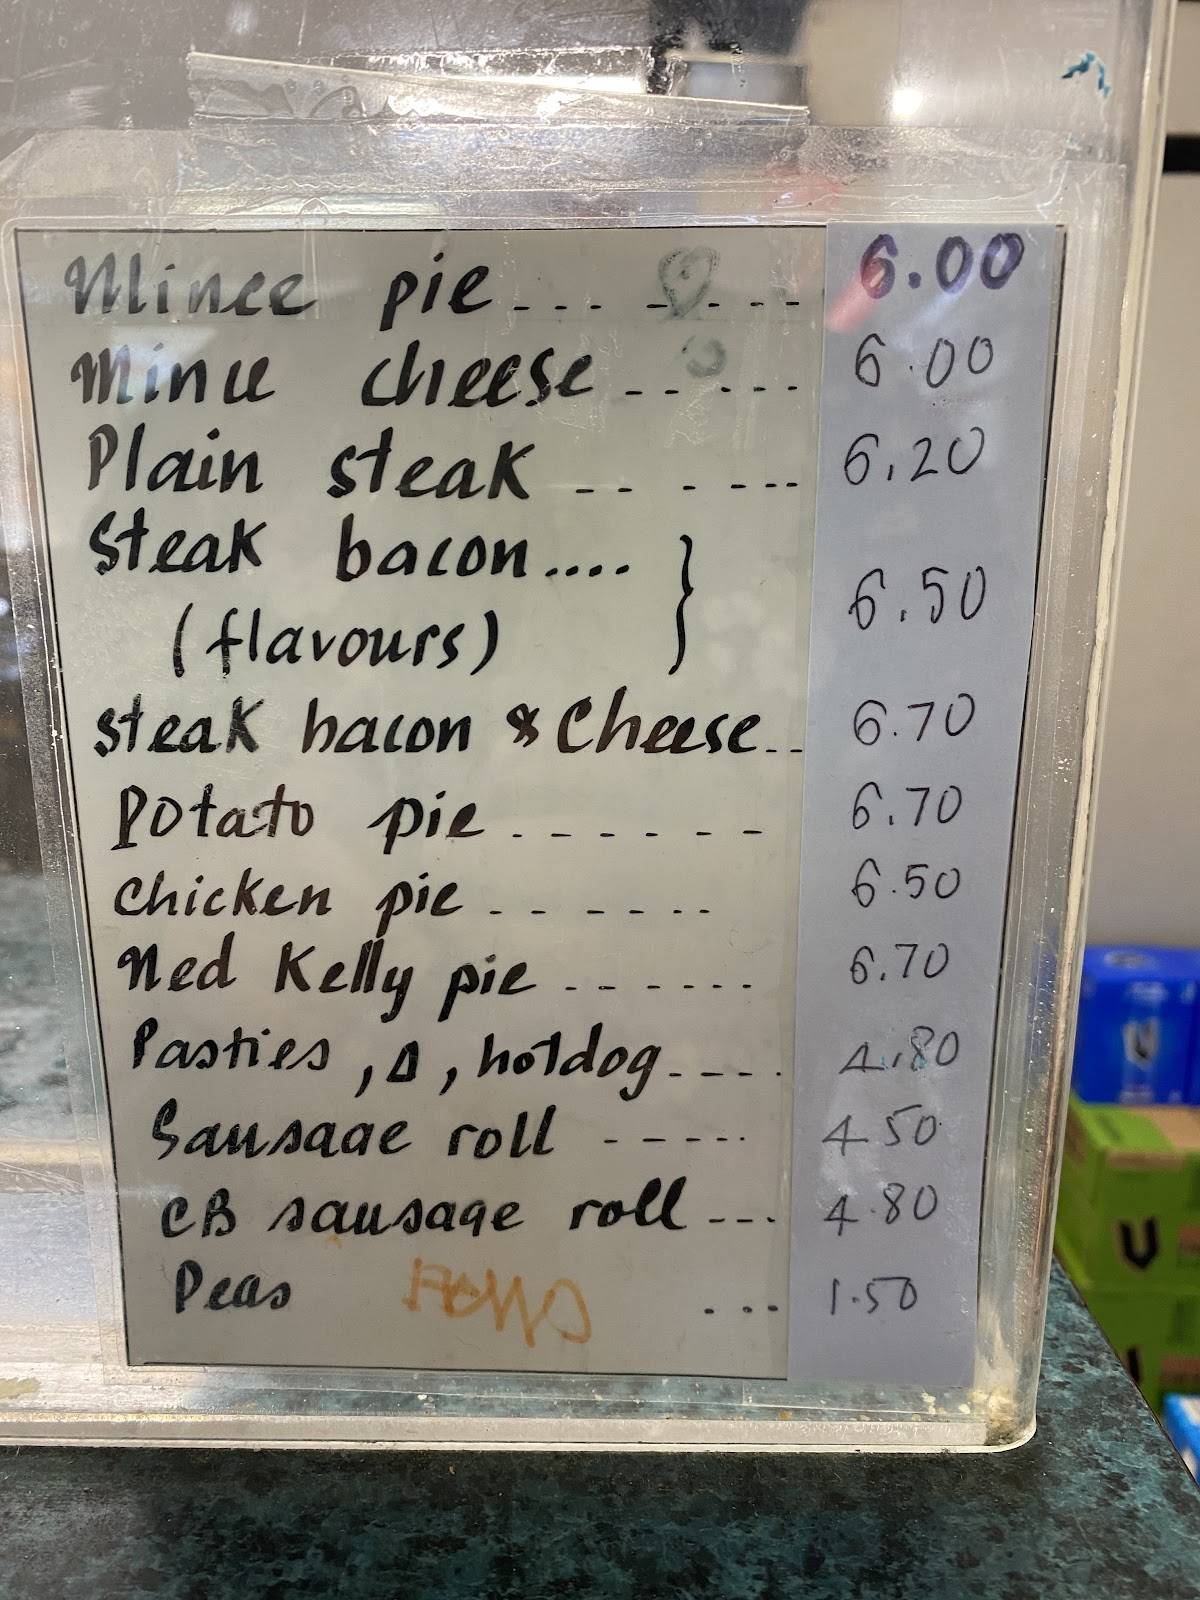 Mince pie........ 6.00
Mince cheese..... 6.00
Plain steak ...... 6.20
Steak bacon.... } 6.50
(flavours)
steak bacon & Cheese.. 6.70
Potato pie...... 6.70
chicken pie...... 6.50
Ned Kelly pie...... 6.70
Pasties, Δ, hotdog.... 4.80
Sausage roll ----- 4.50
CB sausage roll... 4.80
Peas ... 1.50
V
V